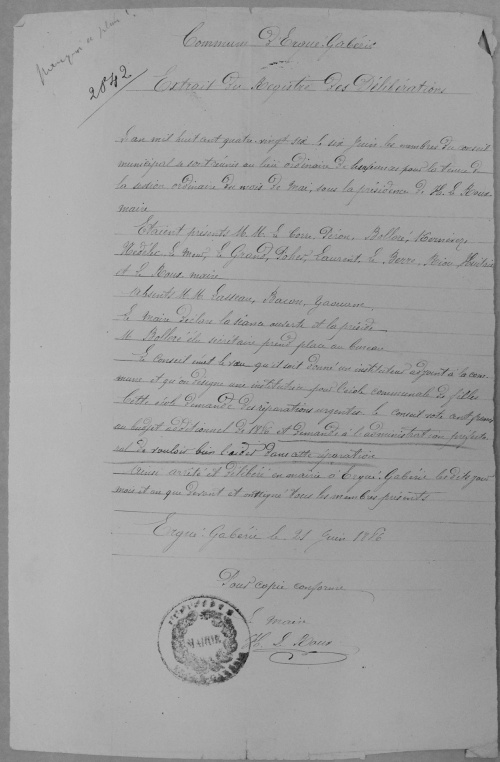 2842
Commune d'Ergué-Gabéric
Extrait du Registre des Délibérations
L'an mil huit cent quatre-vingt six le six Juin les membres du conseil
municipal se sont réunis au lieu ordinaire de leurs pour la tenue de
la session ordinaire du mois de mai, sous la présidence de M. Le Roux
maire
Etaient présents M.M. Le Corre Déron, Bolloré,
Nédélec, Le Meur, Le Grand, Laurent, Le Berre,
et Le Roux maire
Absents M.M. Lasseau, Baron,
Le Maire déclare la séance ouverte et la préside
M. Bolloré élu secrétaire prend place au bureau
Le conseil émet le vœu qu'il soit donné un instituteur adjoint à la com-
mune et qu'on désigne une institutrice pour l'école communale de filles
Cette école demande des réparations urgentes le conseil vote cent francs
au budget additionnel de 1886 et demande à l'administration préfecto
de vouloir bien l'aider dans cette réparation
Ainsi arrêté et délibéré en mairie à Ergué-Gabéric les dits jour
mois et an que devant et ont signé tous les membres présents
Ergué-Gabéric le 21 Juin 1886
Pour copie conforme
Le maire
H. L. Roux
MAIRIE